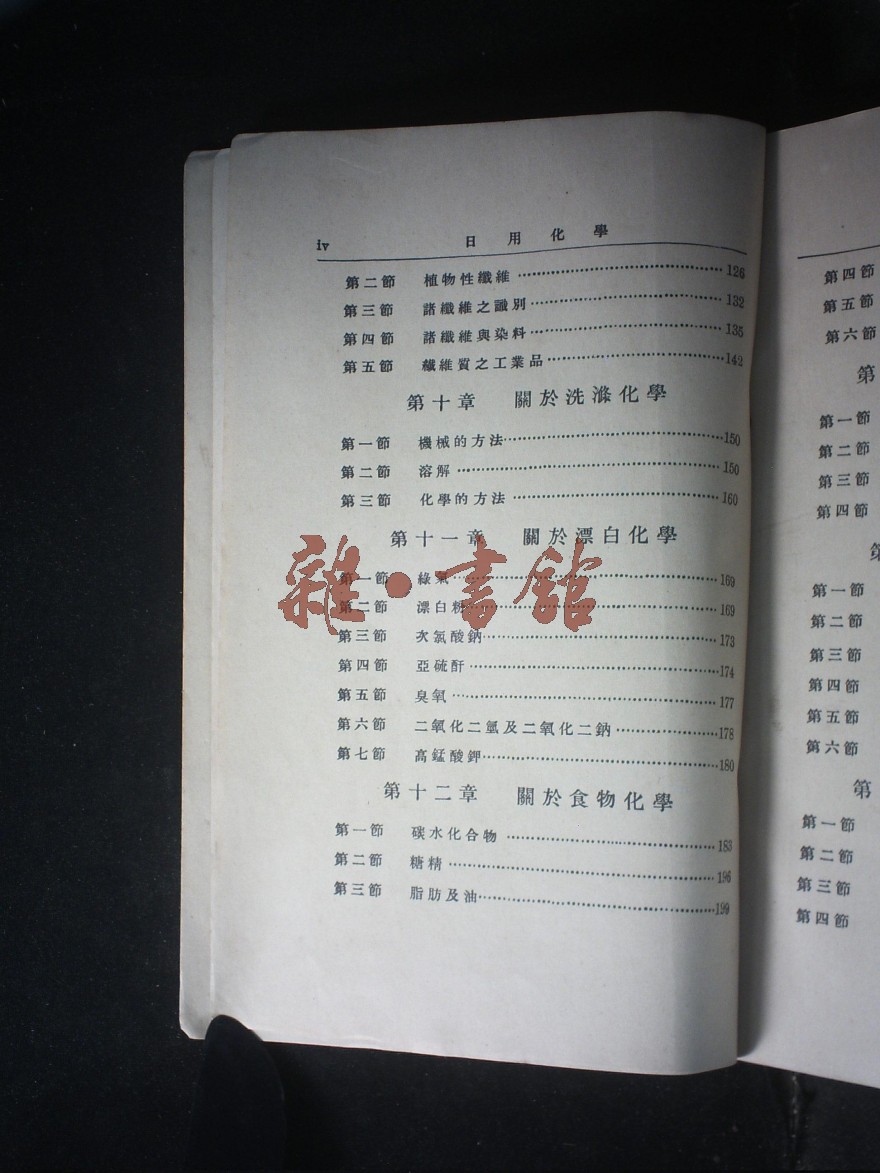 iv 日用化學
第二節 植物性纖維 126
第三節 諸纖維之識別 132
第四節 諸纖維與染料 135
第五節 纖維質之工業品 142
第十章 關於洗滌化學
第一節 機械的方法 150
第二節 溶解 150
第三節 化學的方法 160
第十一章 關於漂白化學
第一節 綠氣 169
第二節 漂白粉 169
第三節 次氯酸鈉 173
第四節 亞硫酐 174
第五節 臭氧 177
第六節 二氧化二氫及二氧化二鈉 178
第七節 高錳酸鉀 180
第十二章 關於食物化學
第一節 碳水化合物 183
第二節 糖精 196
第三節 脂肪及油 199
雜·書館
第四節
第五節
第六節
第
第一節
第二節
第三節
第四節
第
第一節
第二節
第三節
第四節
第五節
第六節
第
第一節
第二節
第三節
第四節